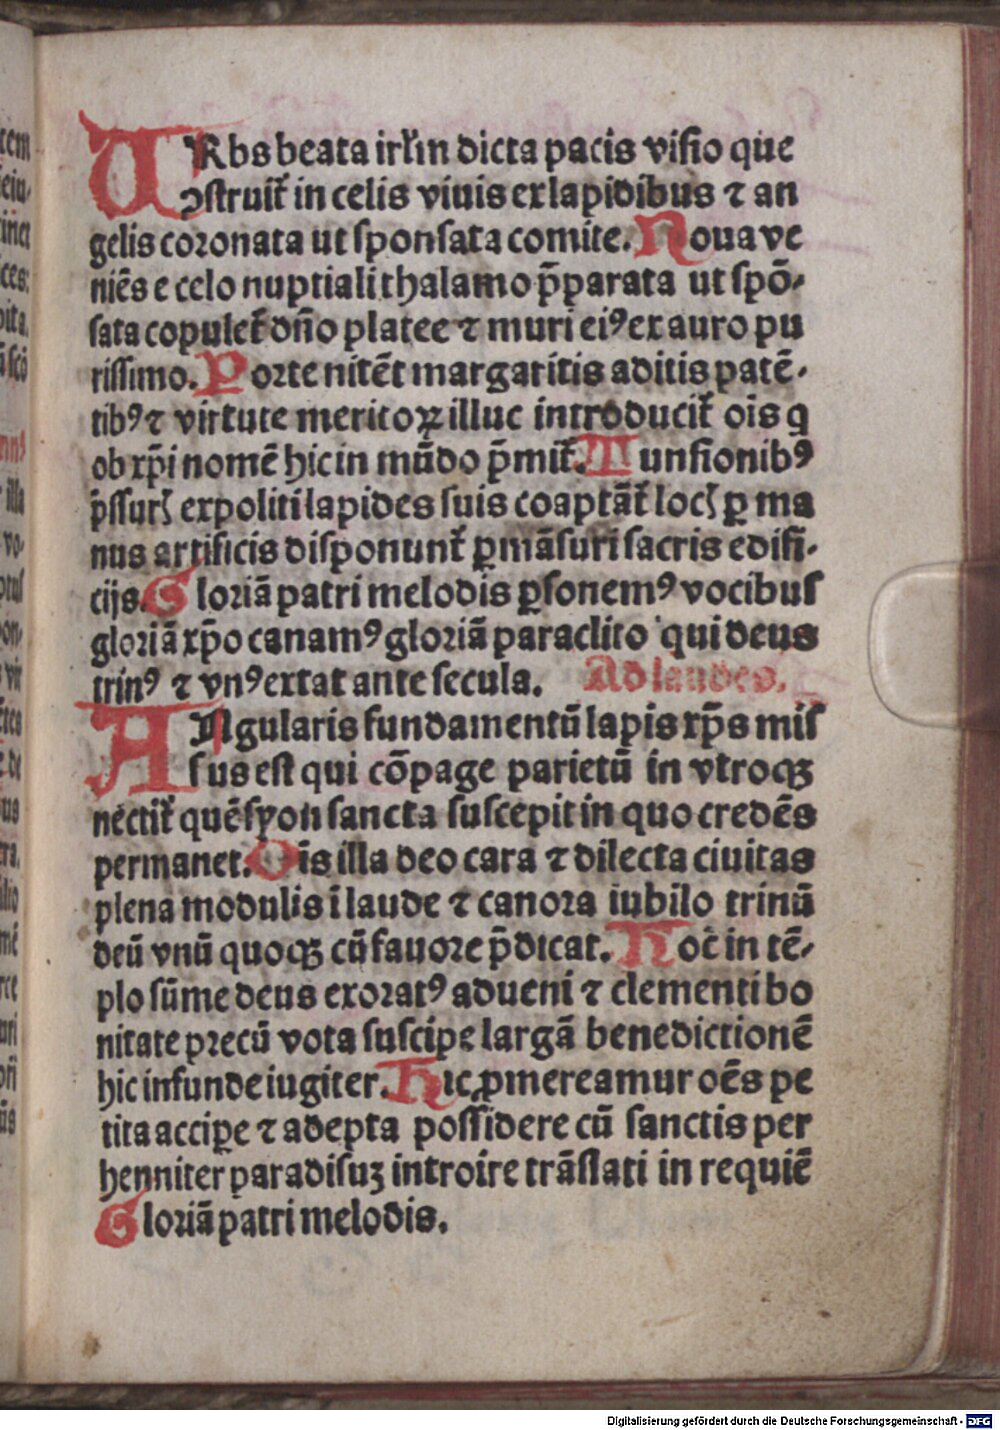 URbs beata irl̄m dicta pacis visio que
ꝯstruit᷑ in celis viuis ex lapidibus ⁊ an
gelis coronata ut sponsata comite. Noua ve
niēs e celo nuptiali thalamo p̄parata ut spō-
sata copulet᷑ dño platee ⁊ muri eiꝰ ex auro pu
rissimo. Porte nitēt margaritis aditis patē-
tibꝰ ⁊ virtute meritoꝝ illuc introducit᷑ oīs q
ob xp̄i nomē hic in mūdo p̄mit᷑. Tunsionibꝰ
p̄ssurꝭ expoliti lapides suis coaptāt᷑ locꝭ ꝑ ma
nus artificis disponunt᷑ ꝑmāsuri sacris edifi-
cijs. Gloriā patri melodis ꝑsonemꝰ vocibus
gloriā xp̄o canamꝰ gloriā paraclito qui deus
trinꝰ ⁊ vnꝰ extat ante secula. Ad laudes.
ANgularis fundamentū lapis xp̄s mis
sus est qui cōpage parietū in vtroqꝫ
nectit᷑ quē syon sancta suscepit in quo credēs
permanet. Oīs illa deo cara ⁊ dilecta ciuitas
plena modulis ī laude ⁊ canora iubilo trinū
deū vnū quoqꝫ cū fauore p̄dicat. Hoc in tē-
plo sūme deus exoratꝰ adueni ⁊ clementi bo
nitate precū vota suscipe largā benedictionē
hic infunde iugiter. Hic ꝓmereamur oēs pe
tita accipe ⁊ adepta possidere cū sanctis per
henniter paradisuꝫ introire trāslati in requiē
Gloriā patri melodis.
Digitalisierung gefördert durch die Deutsche Forschungsgemeinschaft - DFG